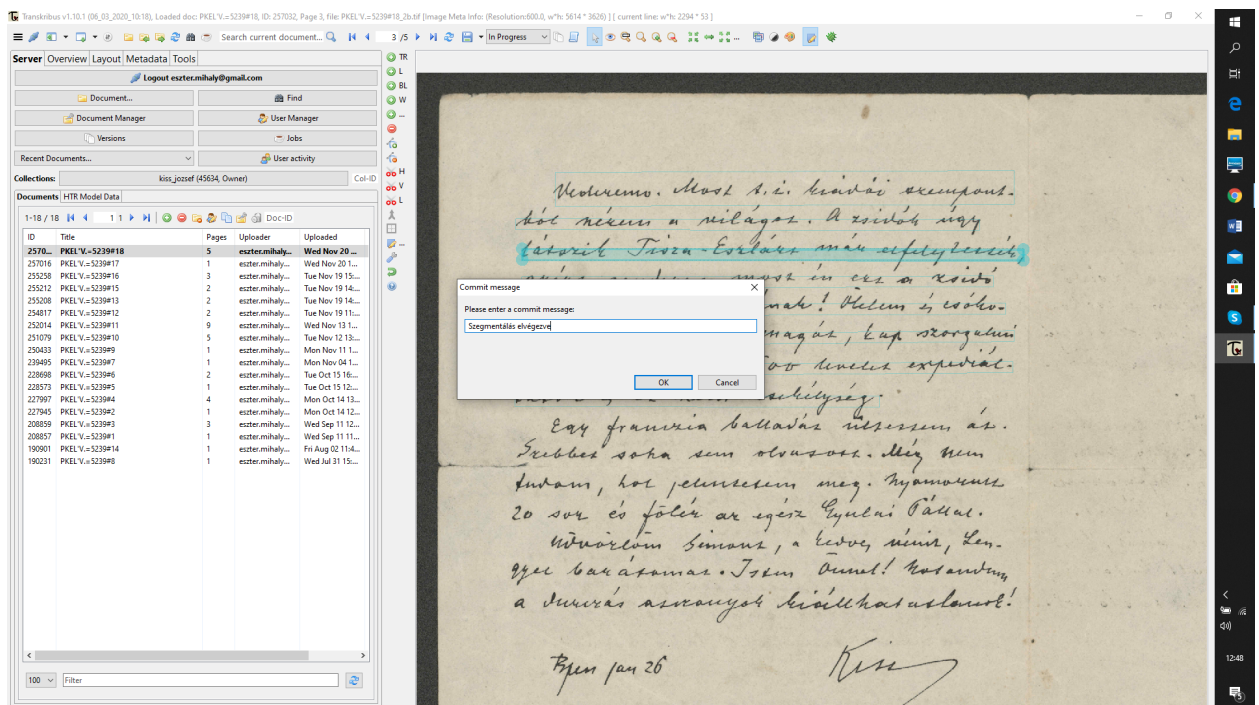 Transkribus v1.10.1 (06_03_2020_10:18), Loaded doc: PKEL'V.=5239#18, ID: 257032, Page 3, file: PKEL'V.=5239#18_2b.tif [Image Meta Info: (Resolution:600.0, w*h: 5614 * 3626) ] [ current line: w*h: 2294 * 53 ]
Search current document... 3 /5 In Progress
Server Overview Layout Metadata Tools
Logout eszter.mihaly@gmail.com
Document... Find
Document Manager User Manager
Versions Jobs
Recent Documents... User activity
Collections: kiss_jozsef (45634, Owner) Col-ID
Documents HTR Model Data
1-18 / 18 1 1 Doc-ID
ID Title Pages Uploader Uploaded
2570... PKEL'V.=5239#18 5 eszter.mihaly... Wed Nov 20 ...
257016 PKEL'V.=5239#17 1 eszter.mihaly... Wed Nov 20 1...
255258 PKEL'V.=5239#16 3 eszter.mihaly... Tue Nov 19 15:...
255212 PKEL'V.=5239#15 2 eszter.mihaly... Tue Nov 19 14:...
255208 PKEL'V.=5239#13 2 eszter.mihaly... Tue Nov 19 14:...
254817 PKEL'V.=5239#12 2 eszter.mihaly... Tue Nov 19 11:...
252014 PKEL'V.=5239#11 9 eszter.mihaly... Wed Nov 13 1...
251079 PKEL'V.=5239#10 5 eszter.mihaly... Tue Nov 12 13:...
250433 PKEL'V.=5239#9 1 eszter.mihaly... Mon Nov 11 1...
239495 PKEL'V.=5239#7 1 eszter.mihaly... Mon Nov 04 1...
228698 PKEL'V.=5239#6 2 eszter.mihaly... Tue Oct 15 16:...
228573 PKEL'V.=5239#5 1 eszter.mihaly... Tue Oct 15 12:...
227997 PKEL'V.=5239#4 4 eszter.mihaly... Mon Oct 14 13...
227945 PKEL'V.=5239#2 1 eszter.mihaly... Mon Oct 14 12...
208859 PKEL'V.=5239#3 3 eszter.mihaly... Wed Sep 11 12...
208857 PKEL'V.=5239#1 1 eszter.mihaly... Wed Sep 11 11...
190901 PKEL'V.=5239#14 1 eszter.mihaly... Fri Aug 02 11:4...
190231 PKEL'V.=5239#8 1 eszter.mihaly... Wed Jul 31 15:...
100 Filter
TR
L
BL
W
...
H
V
L
...
Vederemo. Most t. i. kiadói szempont-
ból nézem a világot. A zsidók úgy
látszik Tisza-Eszlárt már elfelejtették,
most én ezt a zsidó
nak! Ölelem és csóko-
magát, kap szorgalmi
levelet expediál-
csekélység.
Egy franczia balladát ültettem át.
Szebbet soha sem olvasott. Még nem
tudom, hol jelentetem meg. Nyomorult
20 sor és fölér az egész Gyulai Pállal.
Üdvözlöm Simont, a kedves nénit, Len-
gyel barátomat. Isten Önnel!
a asszonyok kiállhatatlanok!
Bpen jan 26 Kiss
Commit message
Please enter a commit message:
Szegmentálás elvégezve
OK Cancel
12:48